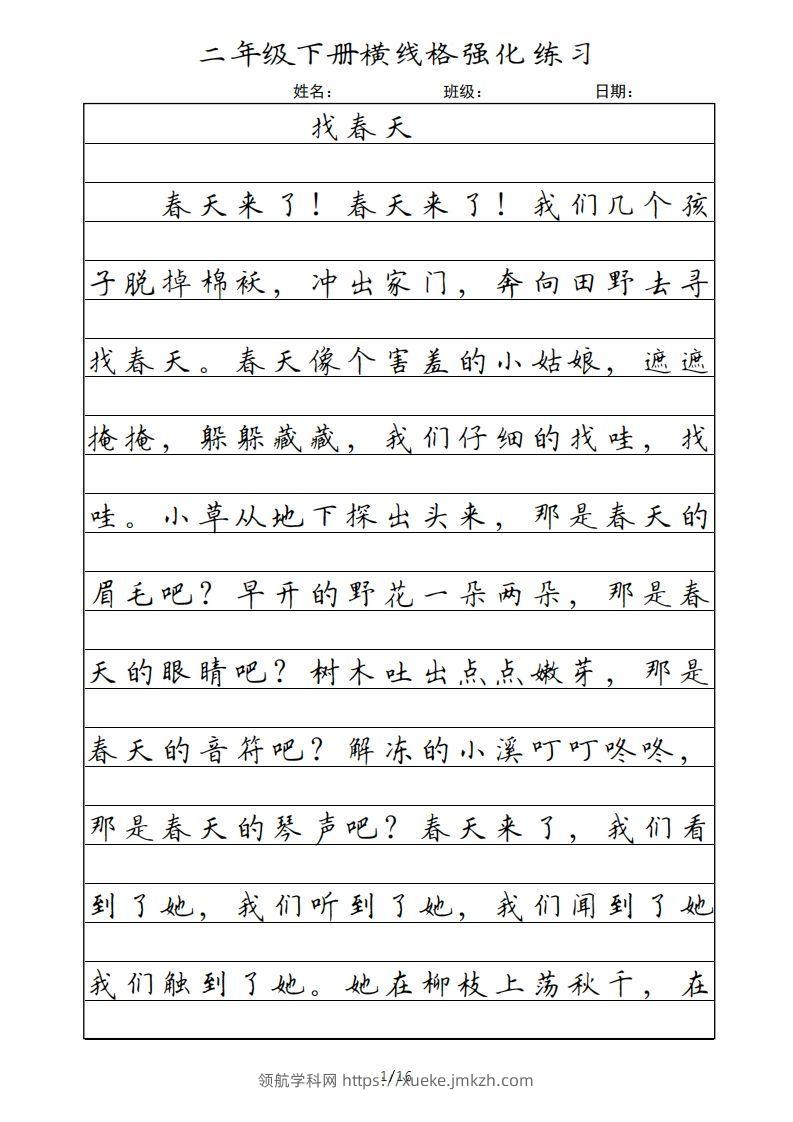 二年级下册横线格强化练习
姓名： 班级： 日期：
找春天
春天来了！春天来了！我们几个孩
子脱掉棉袄，冲出家门，奔向田野去寻
找春天。春天像个害羞的小姑娘，遮遮
掩掩，躲躲藏藏，我们仔细的找哇，找
哇。小草从地下探出头来，那是春天的
眉毛吧？早开的野花一朵两朵，那是春
天的眼睛吧？树木吐出点点嫩芽，那是
春天的音符吧？解冻的小溪叮叮咚咚，
那是春天的琴声吧？春天来了，我们看
到了她，我们听到了她，我们闻到了她
我们触到了她。她在柳枝上荡秋千，在
1/16
领航学科网 https://xueke.jmkzh.com